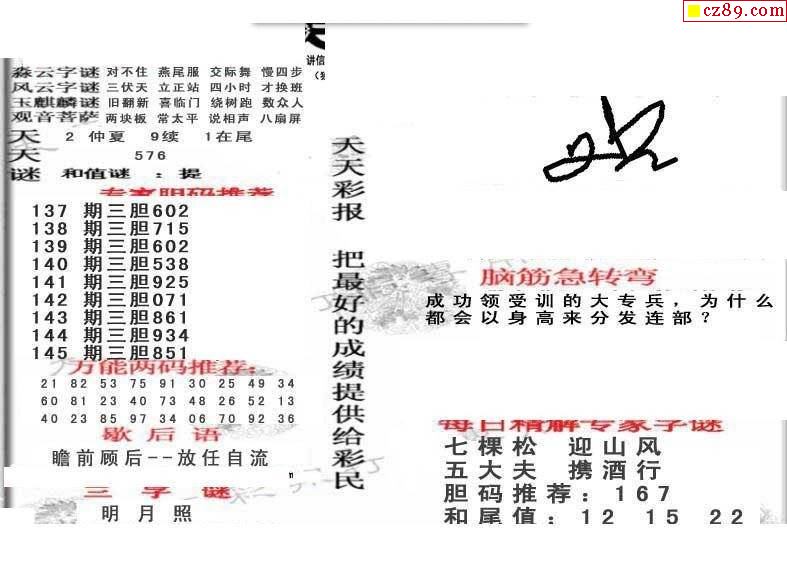 cz89.com
讲信
淼云字谜 对不住 燕尾服 交际舞 慢四步
风云字谜 三伏天 立正站 四小时 才换班
玉麒麟谜 旧翻新 喜临门 绕树跑 数众人
观音菩萨 两块板 常太平 说相声 八扇屏
天 2 仲夏 9续 1在尾
天 576
谜 和值谜 : 提
专家胆码推荐
137 期三胆602
138 期三胆715
139 期三胆602
140 期三胆538
141 期三胆925
142 期三胆071
143 期三胆861
144 期三胆934
145 期三胆851
万能两码推荐:
21 82 53 75 91 30 25 49 34
60 81 23 40 73 48 26 52 13
40 23 85 97 34 06 70 92 36
歇后语
瞻前顾后--放任自流
三字谜
明月照
天天彩报 把最好的成绩提供给彩民
脑筋急转弯
成功领受训的大专兵，为什么
都会以身高来分发连部？
每日精解专家字谜
七棵松 迎山风
五大夫 携酒行
胆码推荐：167
和尾值：12 15 22